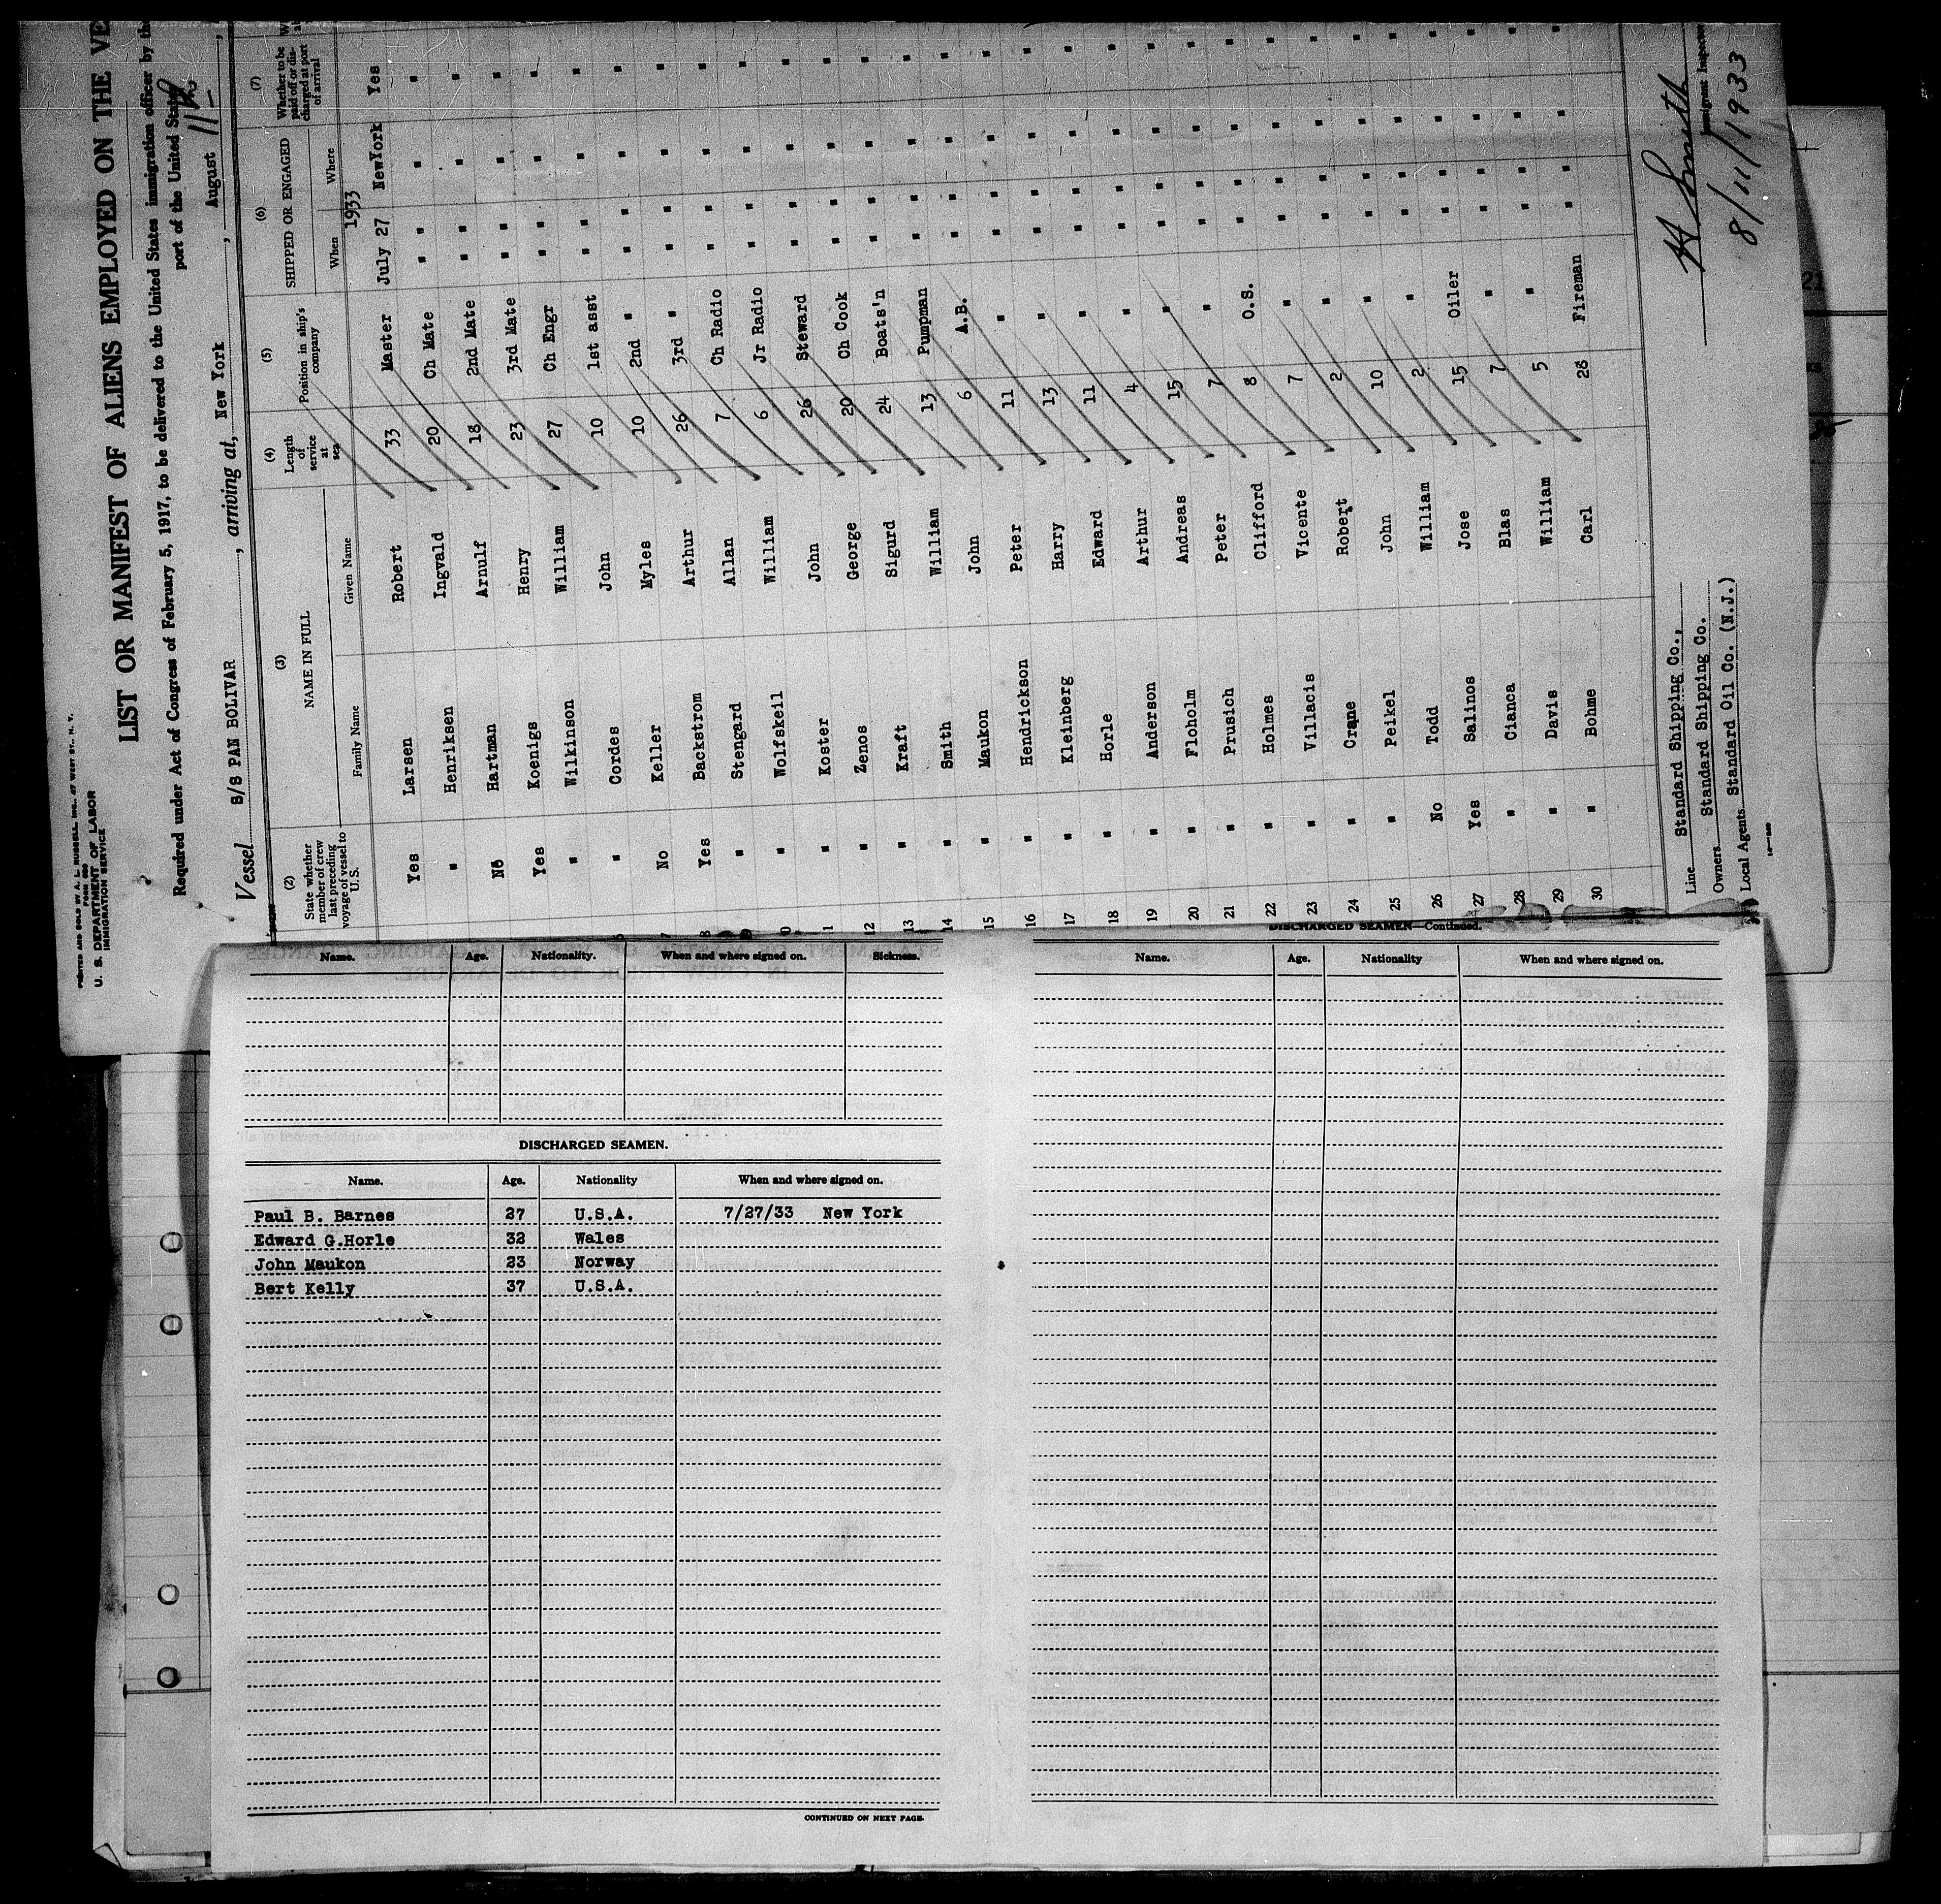 PRINTED AND SOLD BY A. L. RUSSELL, INC., 47 WEST ST., N. Y.
FORM 680
U. S. DEPARTMENT OF LABOR
IMMIGRATION SERVICE
LIST OR MANIFEST OF ALIENS EMPLOYED ON THE VE
Required under Act of Congress of February 5, 1917, to be delivered to the United States immigration officer by th
port of the United States
Vessel S/S PAN BOLIVAR, arriving at, New York, August 11th,
(2) (3) (4) (5) (6) (7)
State whether member of crew last preceding voyage of vessel to U.S. NAME IN FULL Length of service at sea Position in ship's company SHIPPED OR ENGAGED Whether to be paid off or discharged at port of arrival
Family Name Given Name When Where
1933
Yes Larsen Robert 33 Master July 27 NewYork Yes
" Henriksen Ingvald 20 Ch Mate " " " "
No Hartman Arnulf 18 2nd Mate " " " "
Yes Koenigs Henry 23 3rd Mate " " " "
" Wilkinson William 27 Ch Engr " " " "
" Cordes John 10 1st asst " " " "
No Keller Myles 10 2nd " " " " "
8 Yes Backstrom Arthur 26 3rd " " " " "
" Stengard Allan 7 Ch Radio " " " "
0 " Wolfskeil William 6 Jr Radio " " " "
1 " Koster John 26 Steward " " " "
12 " Zenos George 20 Ch Cook " " " "
13 " Kraft Sigurd 24 Boats'n " " " "
14 " Smith William 13 Pumpman " " " "
15 " Maukon John 6 A.B. " " " "
16 " Hendrickson Peter 11 " " " " "
17 " Kleinberg Harry 13 " " " " "
18 " Horle Edward 11 " " " " "
19 " Anderson Arthur 4 " " " " "
20 " Floholm Andreas 15 " " " " "
21 " Prusich Peter 7 " " " " "
22 " Holmes Clifford 8 O.S. " " " "
23 " Villacis Vicente 7 " " " " "
24 " Crane Robert 2 " " " " "
25 " Peikel John 10 " " " " "
26 No Todd William 2 " " " " "
27 Yes Salinos Jose 15 Oiler " " " "
28 " Cianca Blas 7 " " " " "
29 " Davis William 5 " " " " "
30 " Bohme Carl 28 Fireman " " " "
Line Standard Shipping Co.,
Owners Standard Shipping Co.
Local Agents Standard Oil Co. (N.J.)
H Smith
Immigrant Inspector
8/11/1933
21
Name. Age. Nationality. When and where signed on. Sickness.
DISCHARGED SEAMEN.
Name. Age. Nationality When and where signed on.
Paul B. Barnes 27 U.S.A. 7/27/33 New York
Edward G.Horle 32 Wales
John Maukon 23 Norway
Bert Kelly 37 U.S.A.
CONTINUED ON NEXT PAGE.
DISCHARGED SEAMEN—Continued.
Name. Age. Nationality When and where signed on.